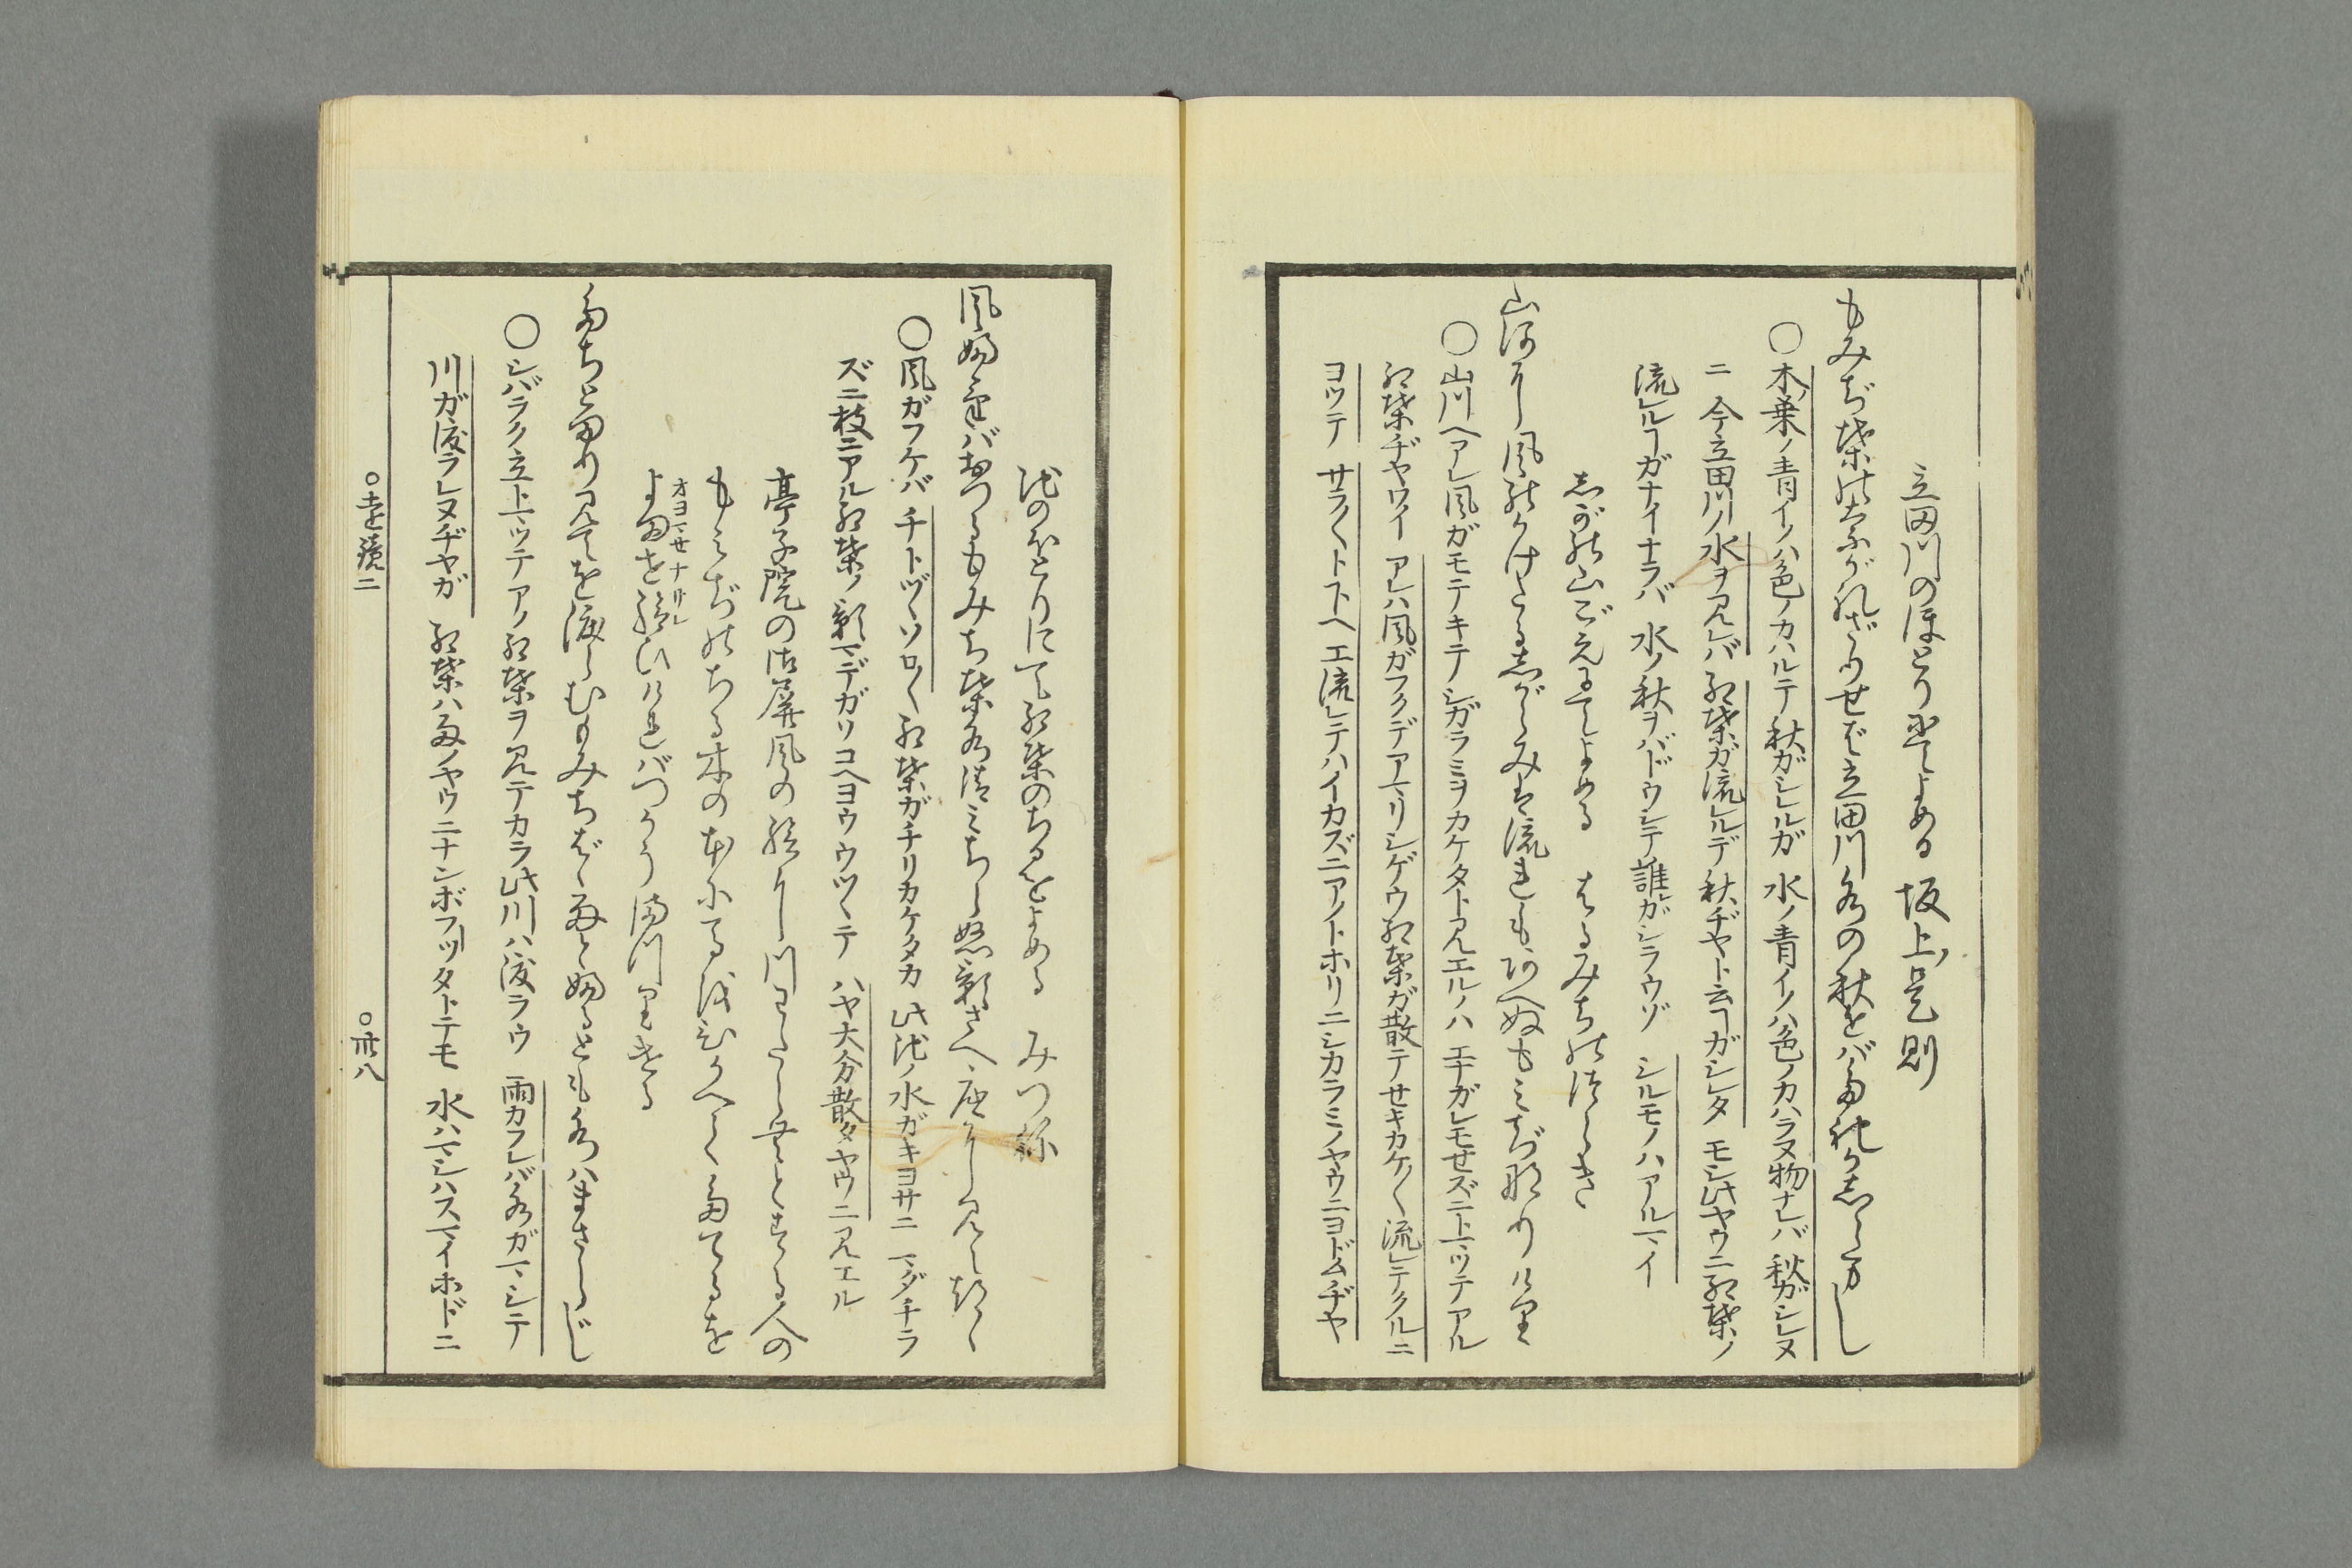 立田川のほとりにてよめる　坂上ノ是則
もみぢ葉のながれざりせば立田川水の秋をばたれかしらまし
○木ノ葉ノ青イノハ色ノカハルテ秋ガシレルガ　水ノ青イノハ色ノカハラヌ物ナレバ　秋ガシレヌ
ニ　今立田川ノ水ヲ見レバ　紅葉ガ流レルデ秋ヂヤト云ヿガシレタ　モシ此ヤウニ紅葉ノ
流レルヿガナイナラバ　水ノ秋ヲバドウシテ誰ガシラウゾ　シルモノハアルマイ
しがの山ごえにてよめる　はるみちのつらき
山河に風のかけたるしがらみは流れもあへぬもみぢなりけり
○山川ヘアレ風ガモテキテシガラミヲカケタト見エルノハ　エナガレモせズニトマツテアル
紅葉ヂヤワイ　アレハ風ガフクデアマリシゲウ紅葉ガ散テせキカケ〳〵流レテクルニ
ヨツテ　サラ〳〵ト下ヘエ流レテハイカズニアノトホリニシカラミノヤウニヨドムヂヤ
池のほとりにて紅葉のちるをよめる　みつね
風ふけばおつるもみち葉水清みちらぬ影さへ底に見えつゝ
○風ガフケバ　チトヅヽソロ〳〵紅葉ガチリカケタカ　此池ノ水ガキヨサニ　マダチラ
ズニ枝ニアル紅葉ノ影マデガソコヘヨウウツヽテ　ハヤ大分散タヤウニ見エル
亭子院の御屏風の絵に川わたらむとする人の
もみぢのちる木の本に馬をひかへてたてるを
よませ給ひければつかうまつりける
オヨマせナサレ
たちとまり見てを渡らむもみちばゝ雨とふるとも水ハまさらじ
○シバラク立トマツテアノ紅葉ヲ見テカラ此川ハ渡ラウ　雨カフレバ水ガマシテ
川ガ渡ラレヌヂヤガ　紅葉ハ雨ノヤウニナンボフツタトテモ　水ハマシハスマイホドニ
○遠鏡二
○卅八